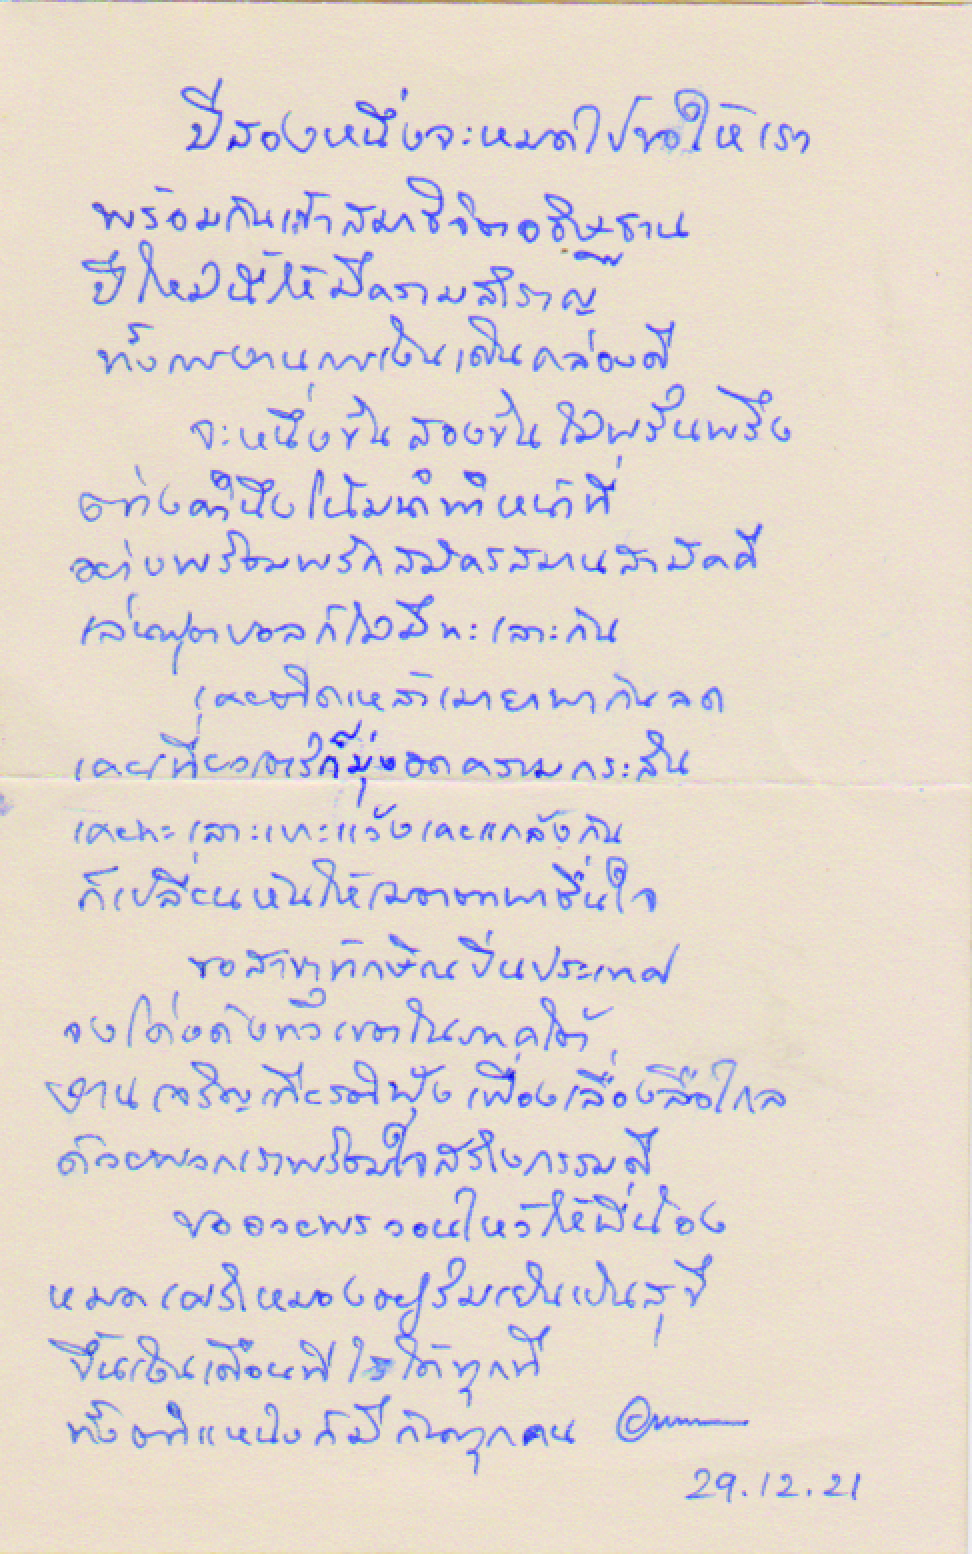 ปีสองหนึ่งจะหมดไปขอให้เรา
พร้อมกันเข้าสมาธิจิตอธิษฐาน
ปีใหม่นี้ให้มีความสำราญ
ทั้งการงานการเงินเดินคล่องดี
จะหนึ่งขั้นสองขั้นไม่พรั่นพรึง
ต่างคำนึงโน้มนำทำหน้าที่
อย่างพร้อมพรักสมัครสมานสามัคคี
เล่นฟุตบอลก็ไม่มีทะเลาะกัน
เคยติดเหล้าเมายาพากันลด
เคยเที่ยว ก็มุ่งอดความกระสัน
เคยทะเลาะเบาะแว้งเคยแกล้งกัน
ก็เปลี่ยนหันให้เมตตาพาชื่นใจ
ขอสาขาทักษิณปิ่นประเทศ
จงโด่งดังทั่วเขตในภาคใต้
งานเจริญ ฟุ้งเฟื่องเลื่องลือไกล
ด้วยพวกเราพร้อมใจสร้างกรรมดี
ขออวยพรวอนไหว้ให้พี่น้อง
หมดเศร้าหมองอยู่ร่มเย็นเป็นสุขี
ขึ้นเงินเดือน ได้ทุกที
ทั้งตำแหน่งก็มีกันทุกคน
29.12.21